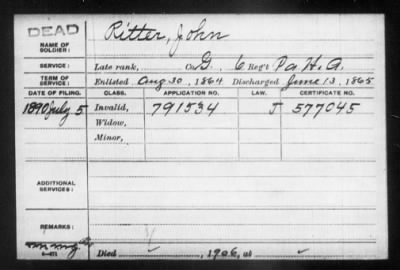 DEAD
NAME OF SOLDIER: Ritter, John
SERVICE: Late rank, Co. G, 6 Reg't Pa H. A.
TERM OF SERVICE: Enlisted Aug 30, 1864 Discharged June 13, 1865
DATE OF FILING. CLASS. APPLICATION NO. LAW. CERTIFICATE NO.
1890 July 5 Invalid, 791534 J 577045
Widow,
Minor,
ADDITIONAL SERVICES:
REMARKS:
Died , 1906, at